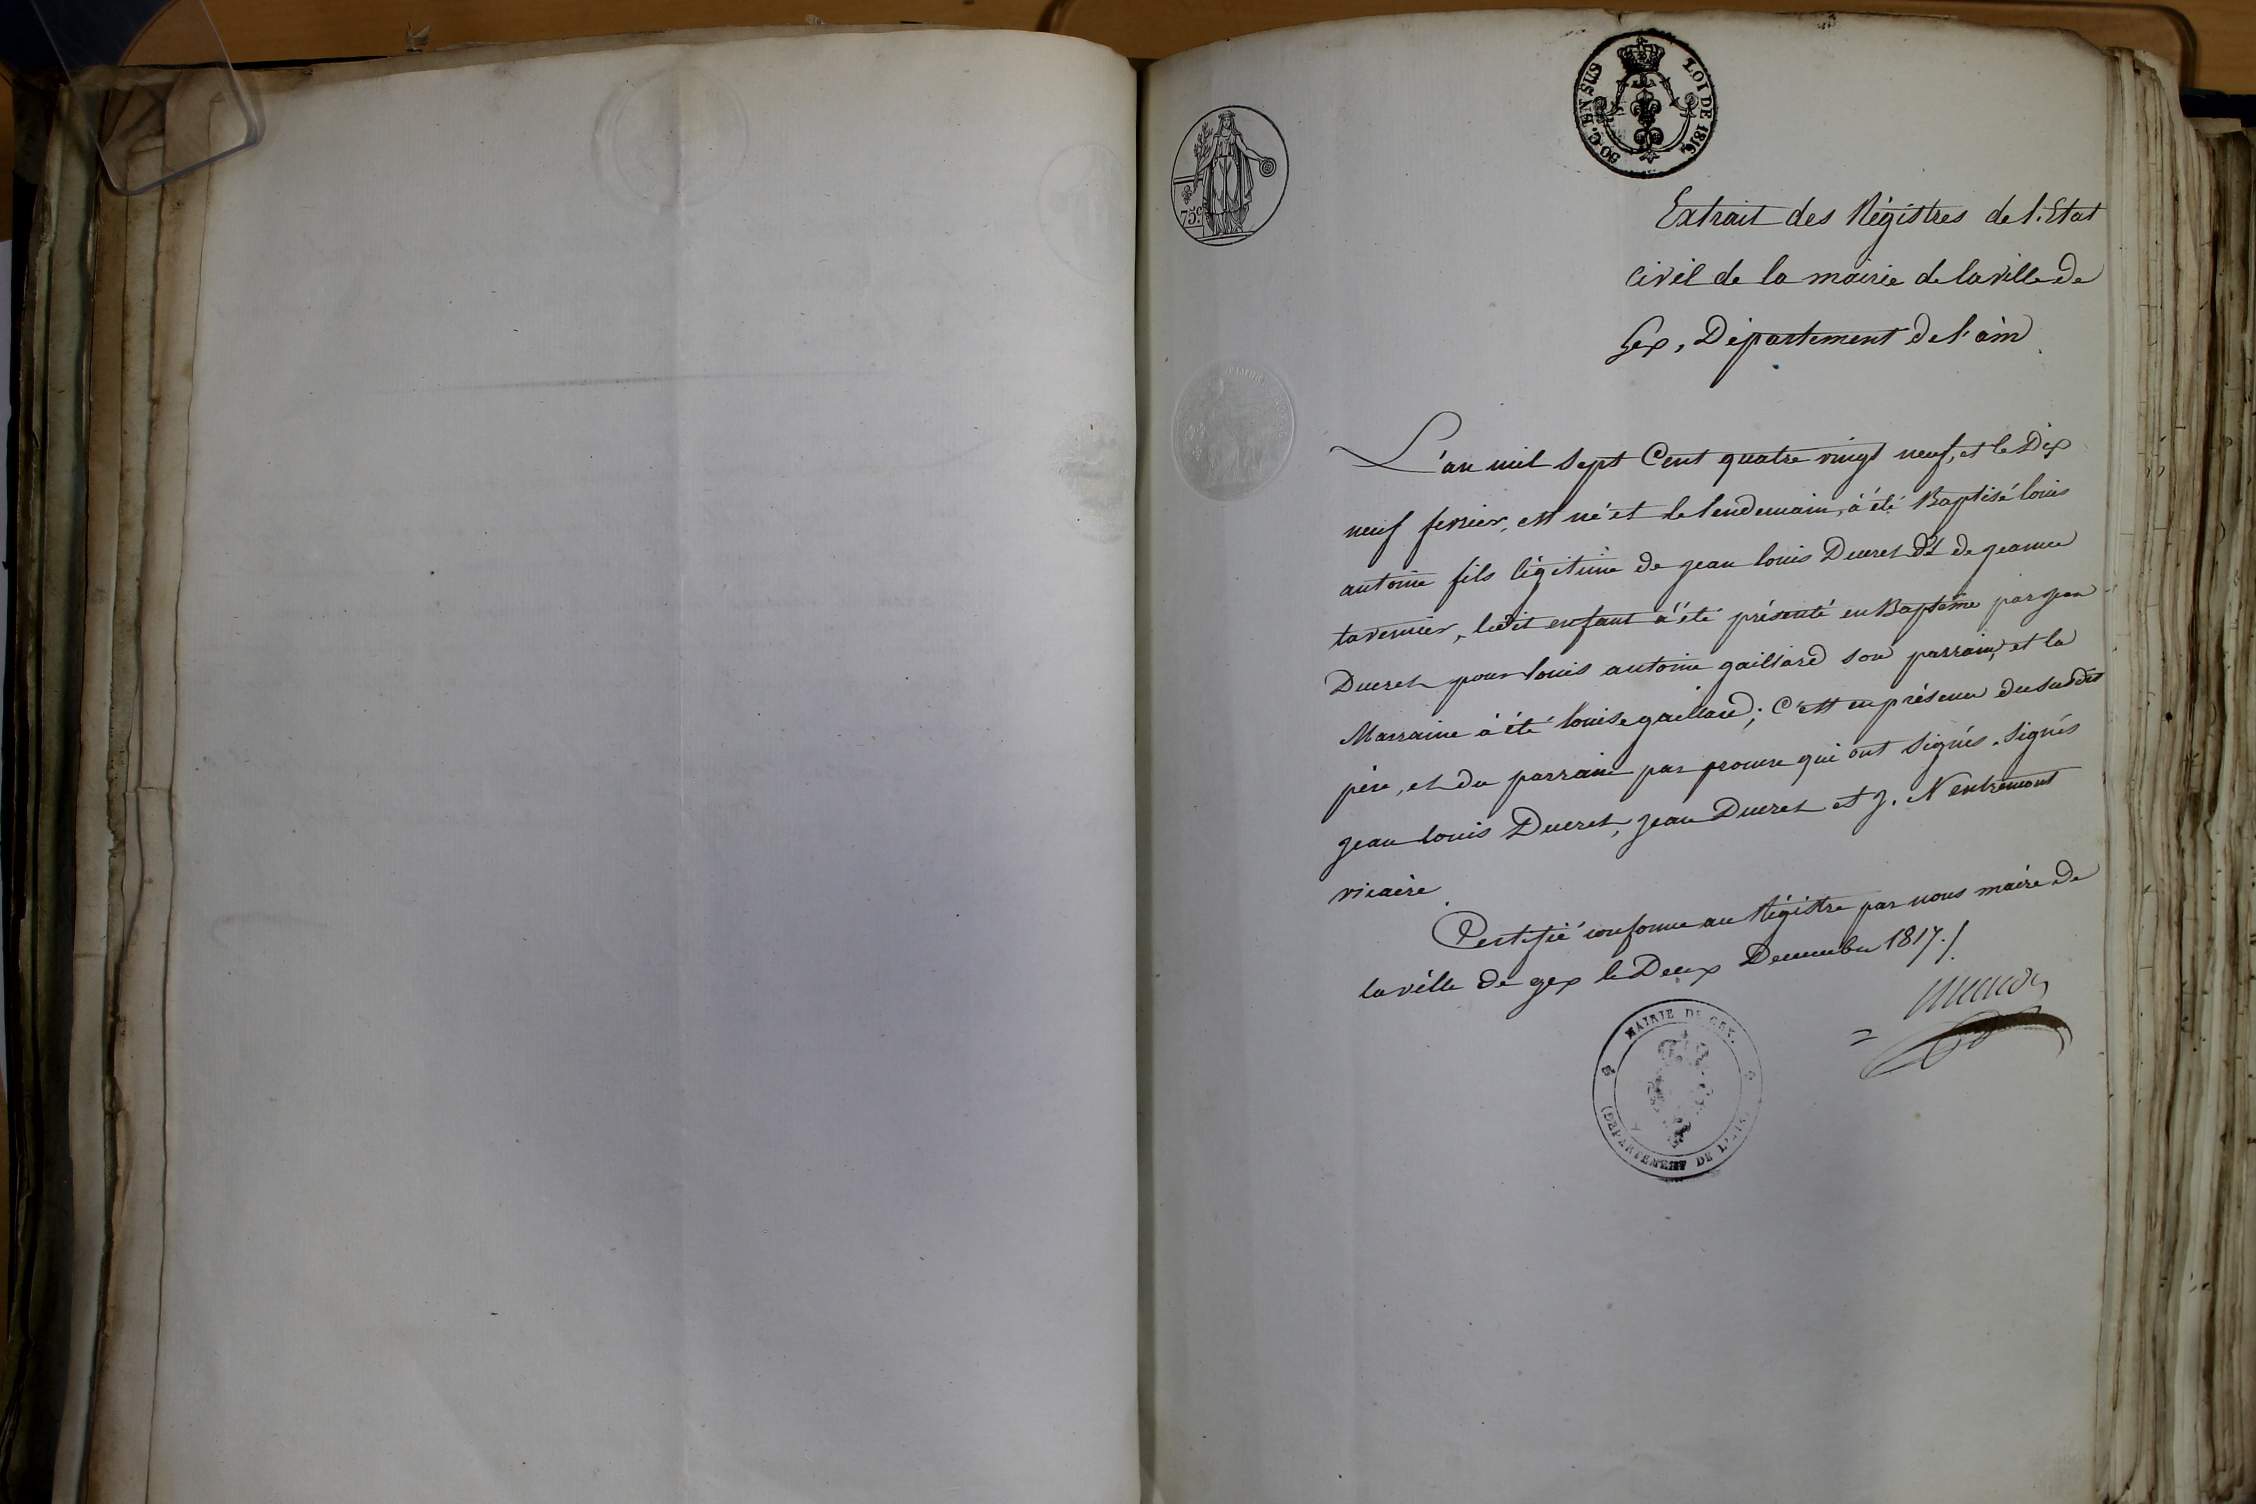 50 C. EN SUS LOI DE 1816.
75c
Extrait des Régistres de l'Etat
Civil de la mairie de la ville de
Gex, Département de l'ain
L'an mil sept Cent quatre vingt neuf, et le Dix
neuf fevrier, est né et le lendemain, à été Baptisé louis
antoine fils légitime de jean louis Ducret & de jeanne
tavernier, ledit enfant à été présenté en Baptême par jean
Ducret pour louis antoine gaillard son parrain, et la
Marraine à été louise gaillard; C'est en présence du susdit
père, et du parrain par procure qui ont signés. signés
jean louis Ducret, jean Ducret et j. N entremont
vicaire
Certifié conforme au Régistre par nous maire de
la ville de gex le Deux Decembre 1817./.
MAIRIE DE GEX.
(DEPARTEMENT DE L'AIN)